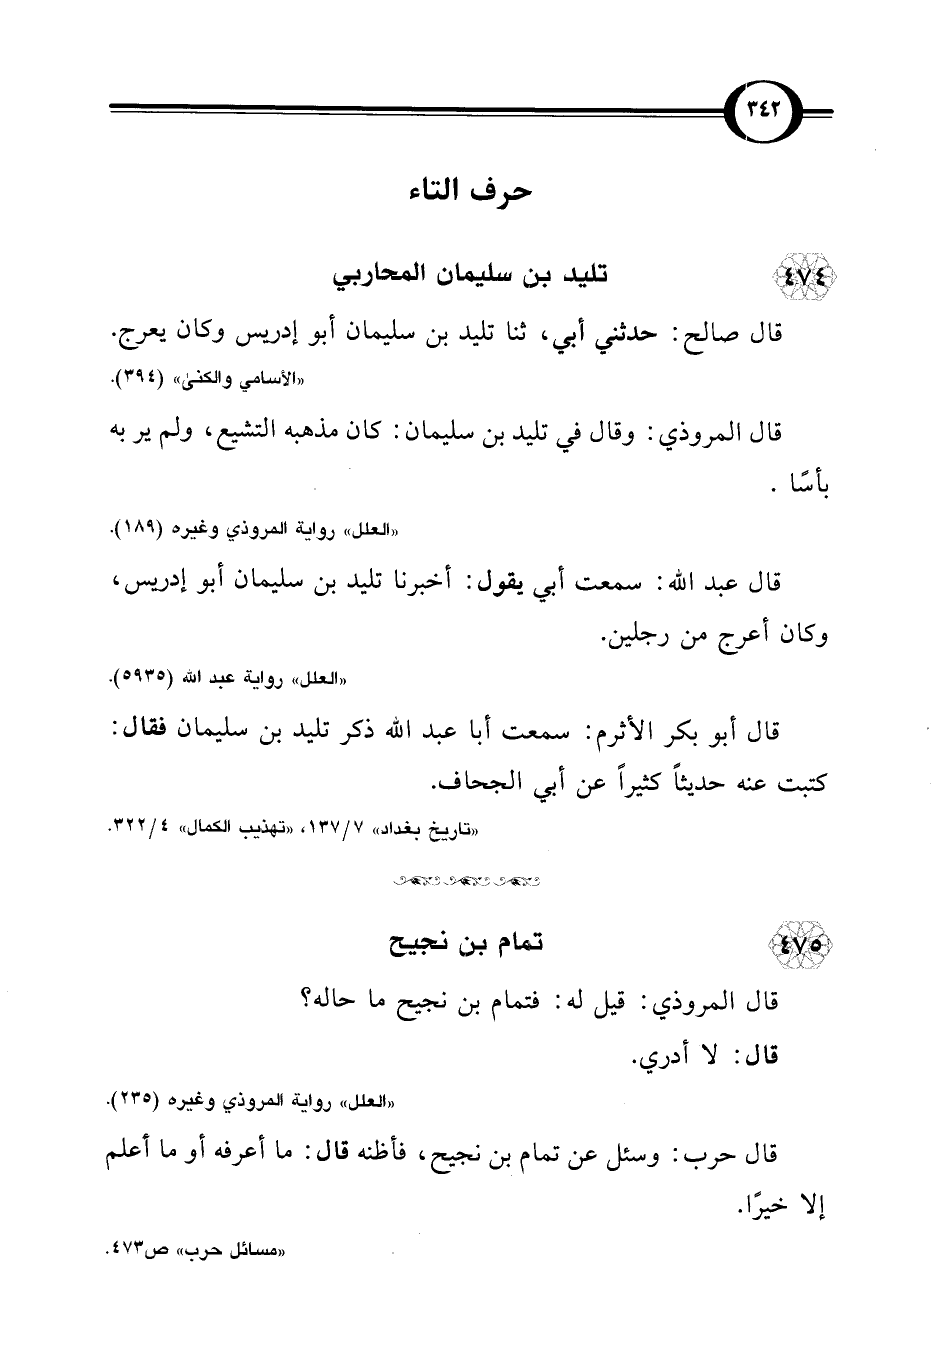 ٣٤٢
حرف التاء
٤٧٤ تليد بن سليمان المحاربي
قال صالح: حدثني أبي، ثنا تليد بن سليمان أبو إدريس وكان يعرج.
«الأسامي والكنى» (٣٩٤).
قال المروذي: وقال في تليد بن سليمان: كان مذهبه التشيع، ولم ير به
بأسًا .
«العلل» رواية المروذي وغيره (١٨٩).
قال عبد الله: سمعت أبي يقول: أخبرنا تليد بن سليمان أبو إدريس،
وكان أعرج من رجلين.
«العلل» رواية عبد الله (٥٩٣٥).
قال أبو بكر الأثرم: سمعت أبا عبد الله ذكر تليد بن سليمان فقال:
كتبت عنه حديثاً كثيراً عن أبي الجحاف.
«تاريخ بغداد» ٧/ ١٣٧، «تهذيب الكمال» ٤/ ٣٢٢.
٤٧٥ تمام بن نجيح
قال المروذي: قيل له: فتمام بن نجيح ما حاله؟
قال: لا أدري.
«العلل» رواية المروذي وغيره (٢٣٥).
قال حرب: وسئل عن تمام بن نجيح، فأظنه قال: ما أعرفه أو ما أعلم
إلا خيرًا.
«مسائل حرب» ص٤٧٣.